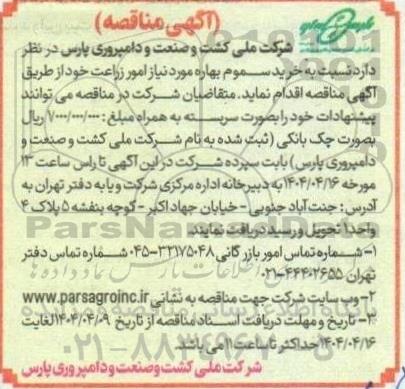 (آگهی مناقصه)
شرکت ملی کشت و صنعت و دامپروری پارس در نظر
دارد نسبت به خرید سموم بهاره مورد نیاز امور زراعت خود از طریق
آگهی مناقصه اقدام نماید. متقاضیان شرکت در مناقصه می توانند
پیشنهادات خود را بصورت سربسته به همراه مبلغ: ۷/۰۰۰/۰۰۰/۰۰۰ ریال
بصورت چک بانکی (ثبت شده به نام شرکت ملی کشت و صنعت و
دامپروری پارس) بابت سپرده شرکت در این آگهی تا راس ساعت ۱۳
مورخه ۱۴۰۴/۰۴/۱۶ به دبیرخانه اداره مرکزی شرکت و یا به دفتر تهران به
آدرس: جنت آباد جنوبی - خیابان جهاد اکبر - کوچه بنفشه ۵ پلاک ۴
واحد ۱ تحویل و رسید دریافت نمایند.
۱- شماره تماس امور بازرگانی ۳۲۱۷۵۰۴۸-۰۴۵ شماره تماس دفتر
تهران ۴۴۴۰۲۶۵۵-۰۲۱
۲- وب سایت شرکت جهت مناقصه به نشانی www.parsagroinc.ir
۳- تاریخ و مهلت دریافت اسناد مناقصه از تاریخ ۱۴۰۴/۰۴/۰۹ لغایت
۱۴۰۴/۰۴/۱۶ حداکثر تا ساعت ۱۱ می باشد.
شرکت ملی کشت و صنعت و دامپروری پارس